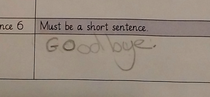 nce 6 Must be a short sentence.
GOodbye.